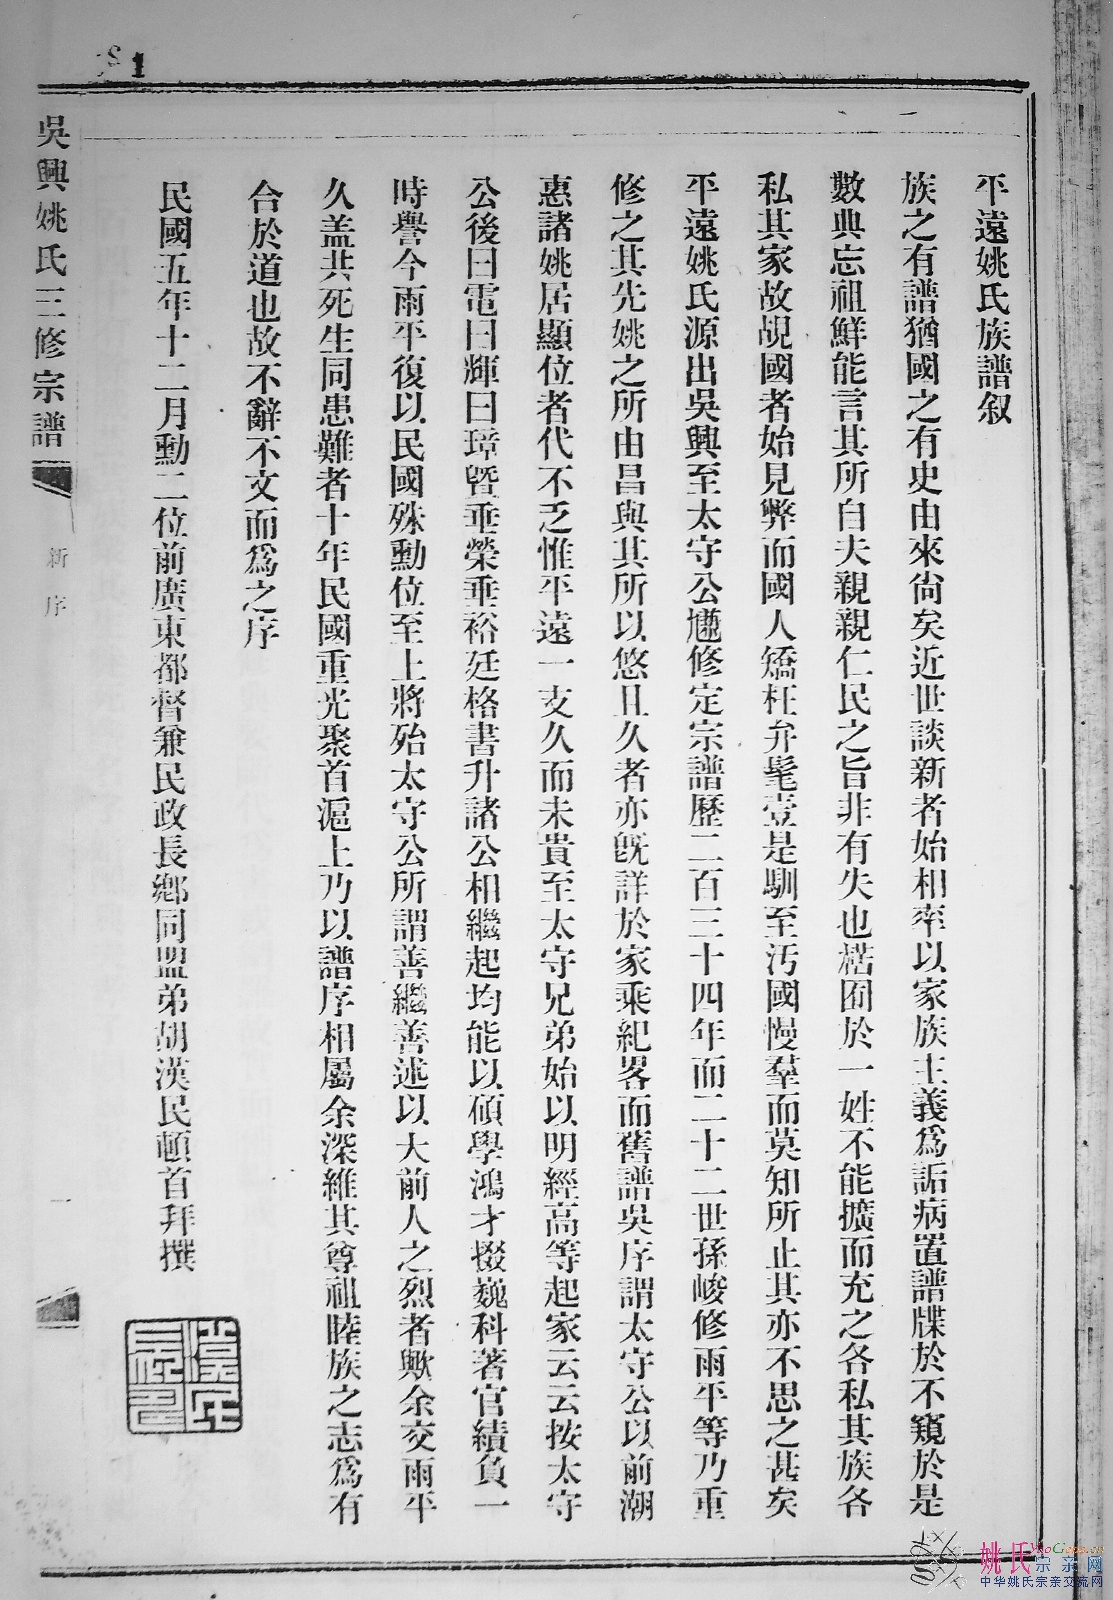 平遠姚氏族譜叙
族之有譜猶國之有史由來尙矣近世談新者始相率以家族主義爲詬病置譜牒於不窺於是
數典忘祖鮮能言其所自夫親親仁民之旨非有失也梏囿於一姓不能擴而充之各私其族各
私其家故覘國者始見弊而國人矯枉弁髦壹是馴至汚國慢羣而莫知所止其亦不思之甚矣
平遠姚氏源出吳興至太守公 修定宗譜歷二百三十四年而二十二世孫峻修雨平等乃重
修之其先姚之所由昌與其所以悠且久者亦旣詳於家乘紀畧而舊譜吳序謂太守公以前潮
惠諸姚居顯位者代不乏惟平遠一支久而未貴至太守兄弟始以明經高等起家云云按太守
公後曰電曰輝曰璋曁垂榮垂裕廷格書升諸公相繼起均能以碩學鴻才掇巍科著官績負一
時譽今雨平復以民國殊勳位至上將殆太守公所謂善繼善述以大前人之烈者歟余交雨平
久盖共死生同患難者十年民國重光聚首滬上乃以譜序相屬余深維其尊祖睦族之志爲有
合於道也故不辭不文而爲之序
民國五年十二月勳二位前廣東都督兼民政長鄕同盟弟胡漢民頓首拜撰
漢民
吳興姚氏三修宗譜
新序
一
1
姚氏宗亲网
YaoGens.cn
中华姚氏宗亲交流网